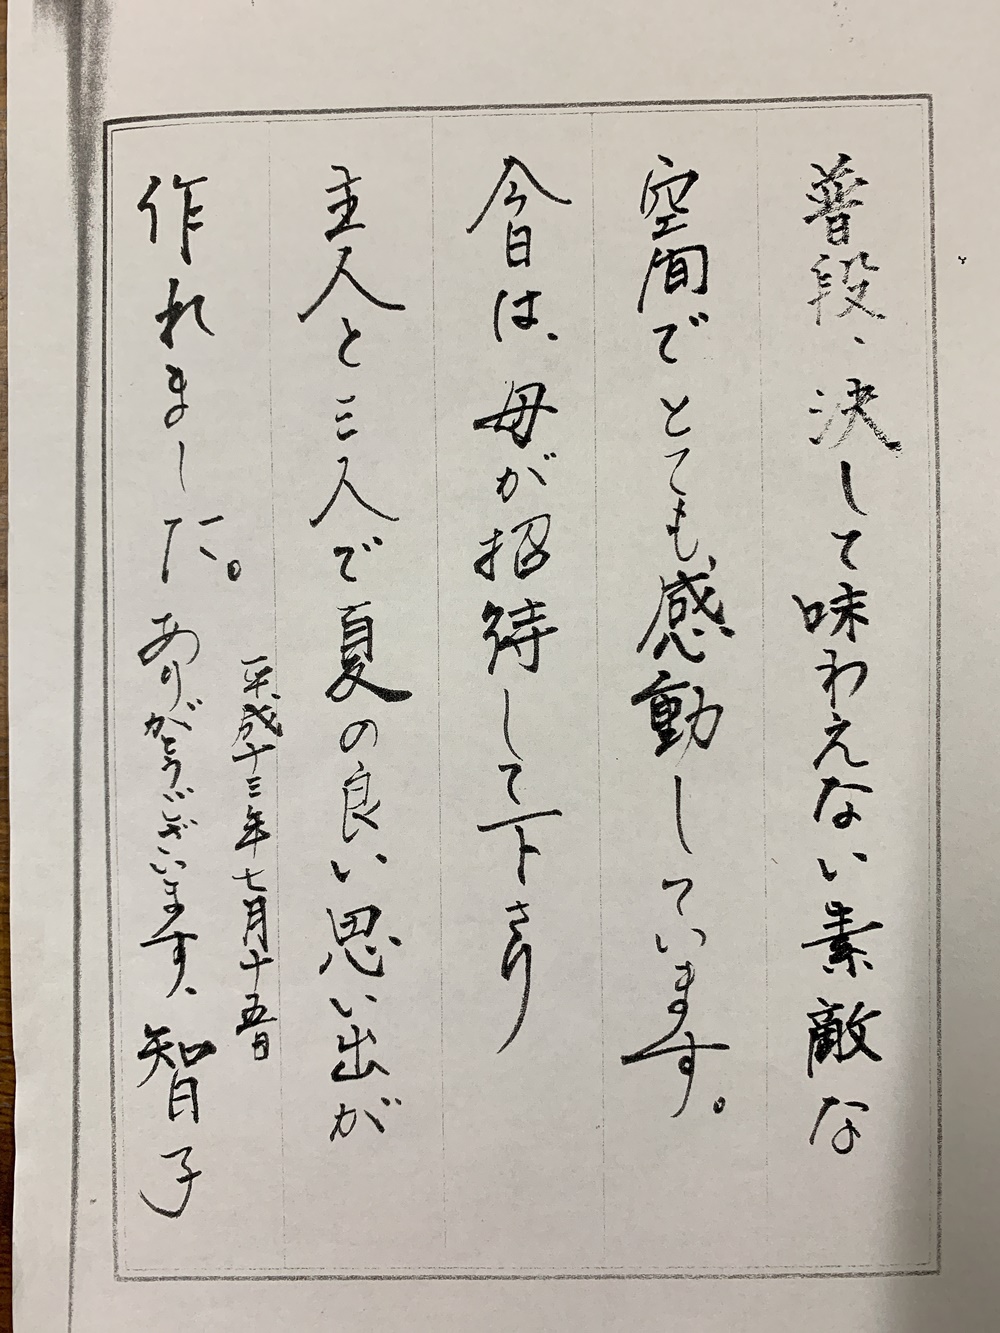 普段、決して味わえない素敵な
空間でとても感動しています。
今日は、母が招待して下さり
主人と三人で夏の良い思い出が
作れました。ありがとうございます、智子
平成十三年七月十五日